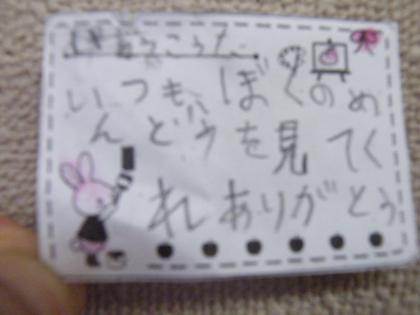 いつも、ぼくのめ
んどうを見てく
れありがとう